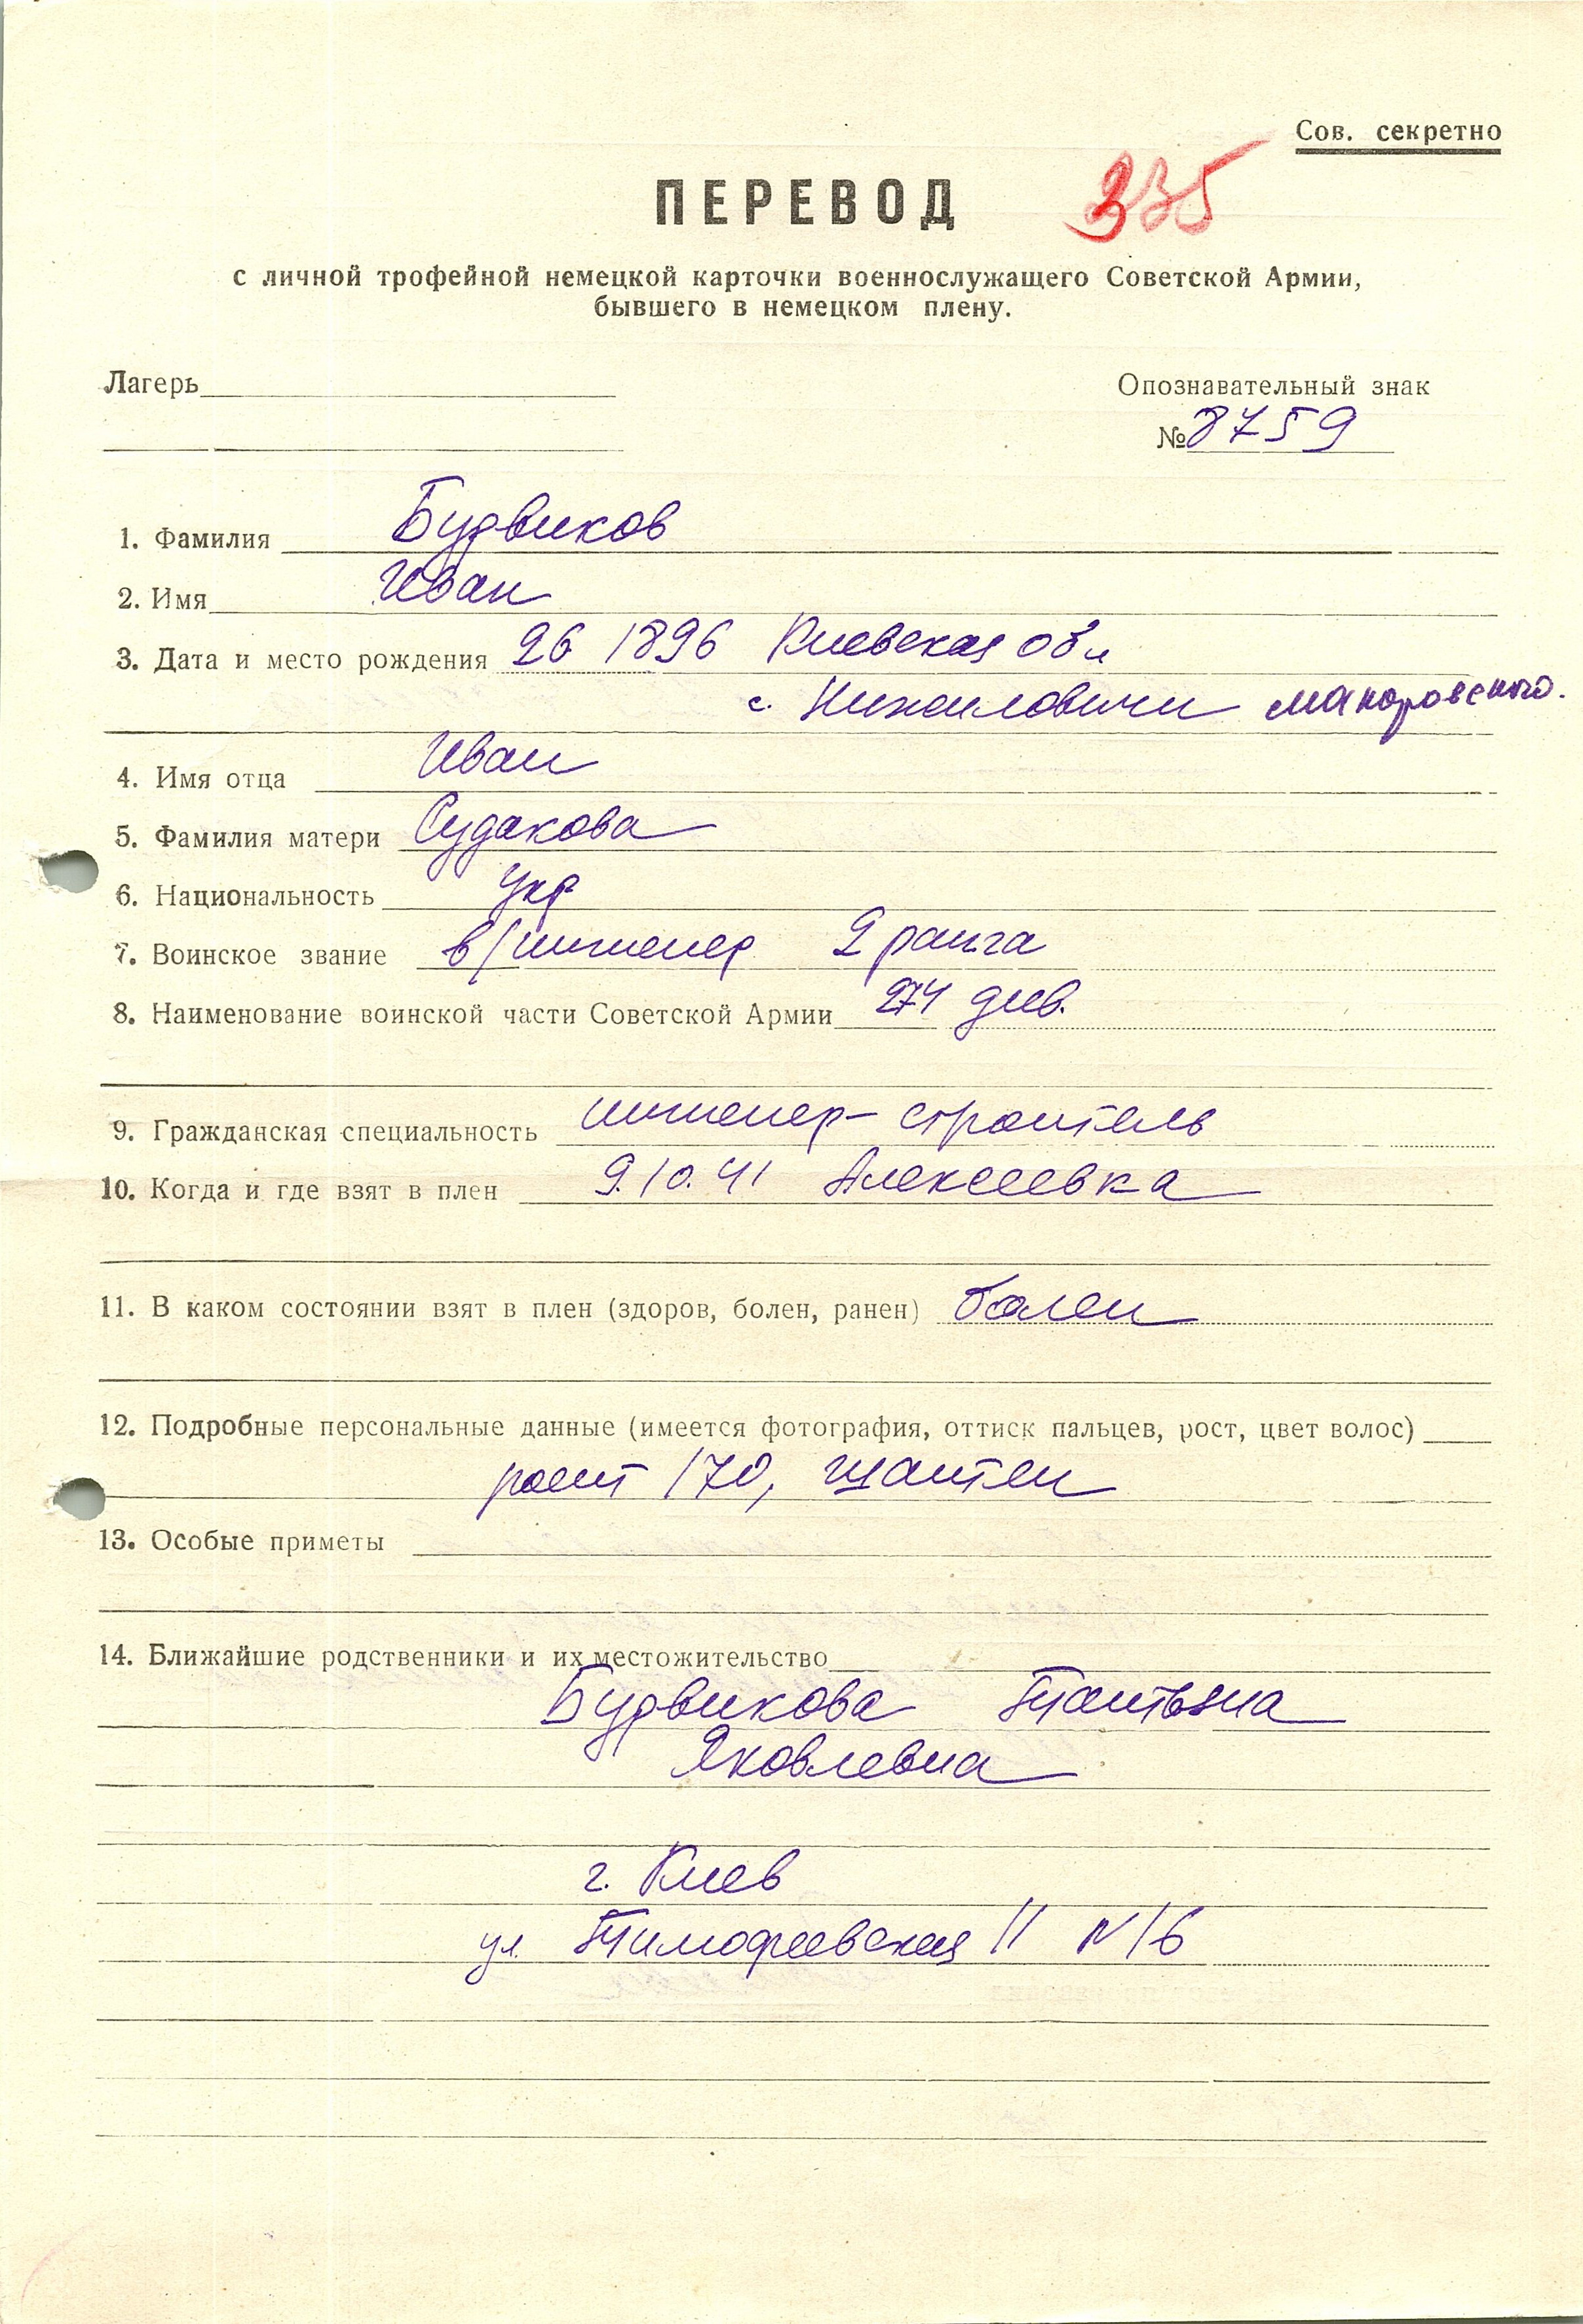 Сов. секретно
ПЕРЕВОД 335
с личной трофейной немецкой карточки военнослужащего Советской Армии,
бывшего в немецком плену.
Лагерь
Опознавательный знак
№ 8759
1. Фамилия Будвиков
2. Имя Иван
3. Дата и место рождения 26 1896 Киевская обл
с. Нижиловичи Макаровского.
4. Имя отца Иван
5. Фамилия матери Судакова
6. Национальность укр
7. Воинское звание в/инженер 2 ранга
8. Наименование воинской части Советской Армии 274 див.
9. Гражданская специальность инженер-строитель
10. Когда и где взят в плен 9.10.41 Алексеевка
11. В каком состоянии взят в плен (здоров, болен, ранен) болен
12. Подробные персональные данные (имеется фотография, оттиск пальцев, рост, цвет волос)
рост 170, шатен
13. Особые приметы
14. Ближайшие родственники и их местожительство
Будвикова Татьяна
Яковлевна
г. Киев
ул. Тимофеевская 11 N 16